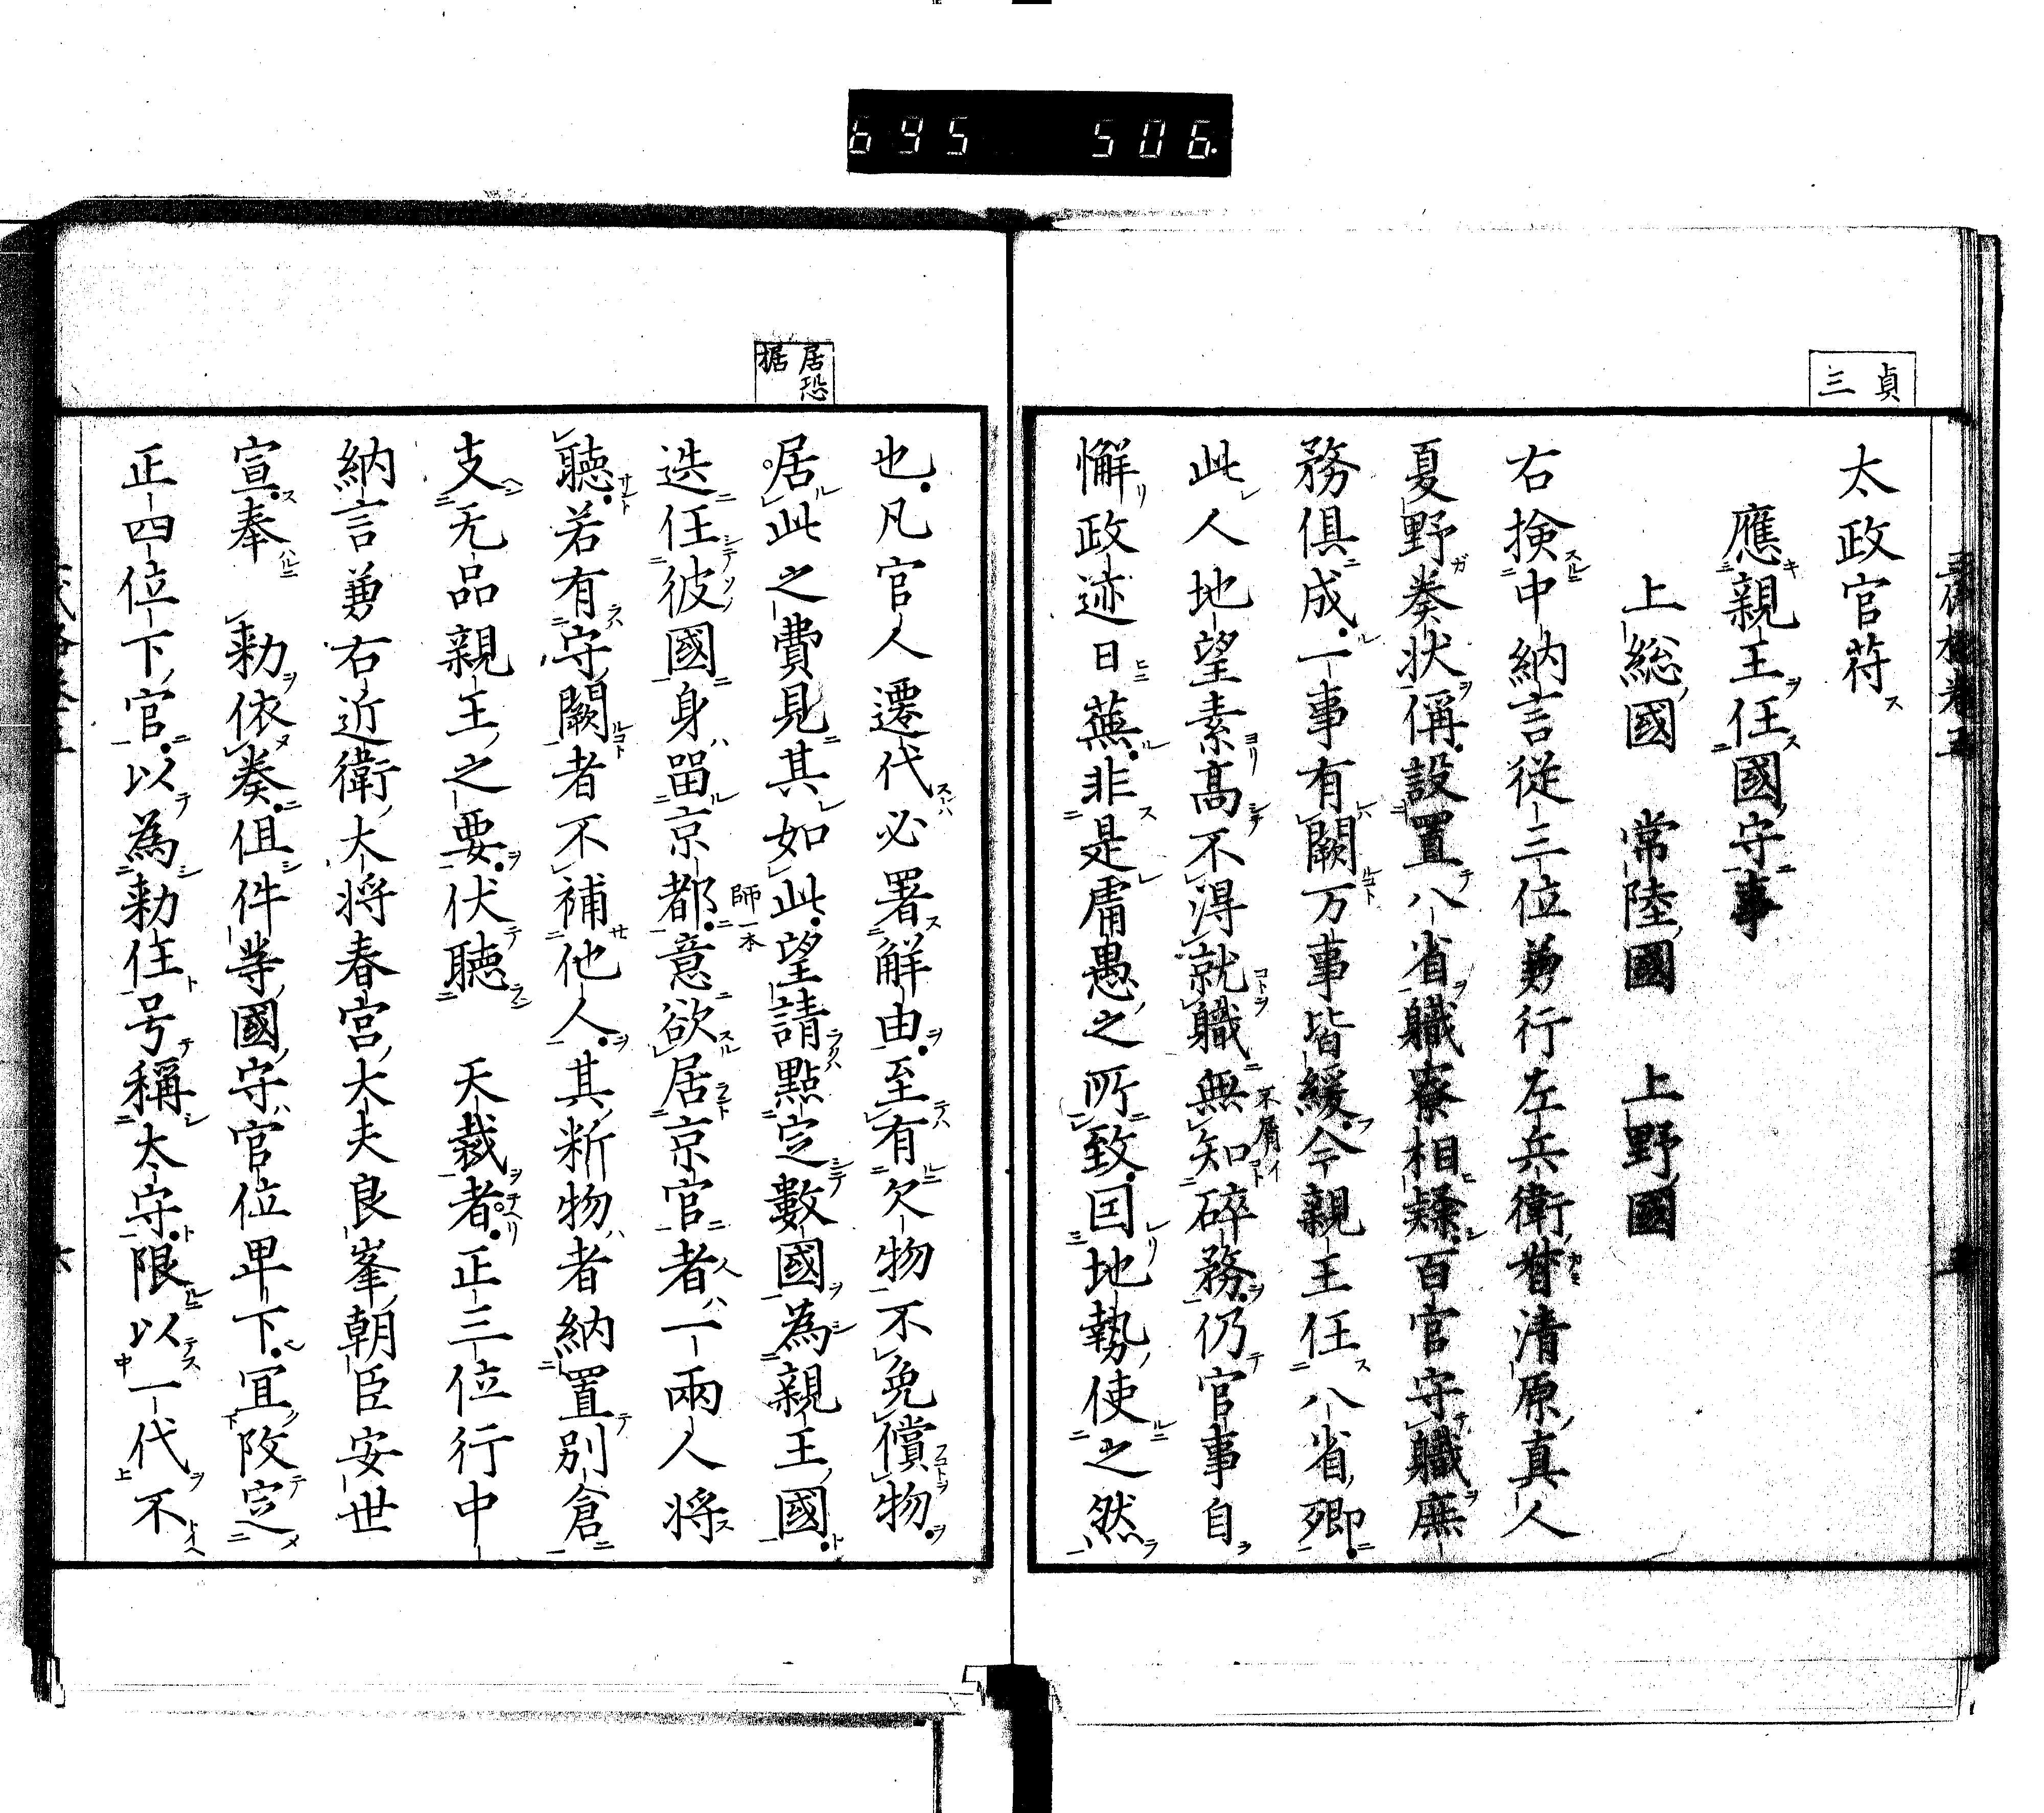 695 506.
貞
三
太政官符
應親王任國守事
上総國 常陸國 上野國
右検中納言従三位兼行左兵衛督清原真人
夏野奏状偁設置八省職寮相疑百官守職庶
務倶成一事有闕万事皆緩今親王任八省卿
此人地望素高不得就職無知碎務仍官事自
不屑イ
懈政迹日蕪非是庸愚之所致因地勢使之然
也凡官人遷代必署解由至有欠物不免償物
居恐
据
居此之費見其如此望請點定數國為親王國
迭任彼國身留京都意欲居京官者一兩人將
師一本
聴若有守闕者不補他人其断物者納置別倉
支无品親王之要伏聴 天裁者正三位行中
納言兼右近衛大将春宮大夫良峯朝臣安世
宣奉 勅依奏但件等國守官位卑下宜改定
正四位下官以為勅任号稱太守限以一代不